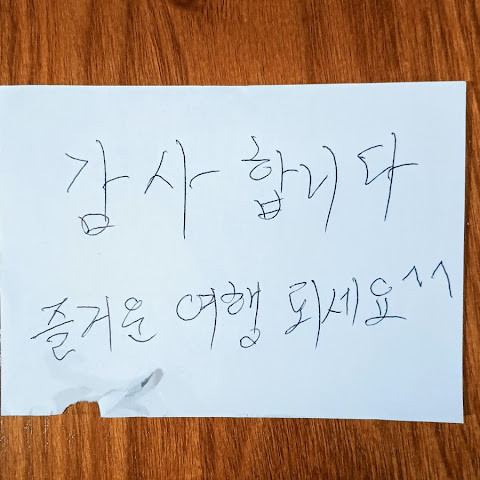 감사합니다
즐거운 여행 되세요^^